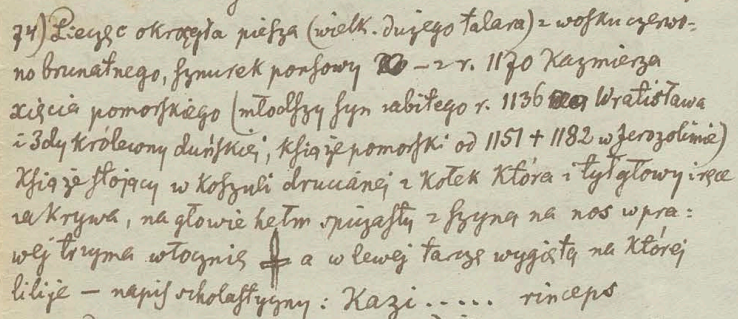 74) Pieczęć okrągła piesza (wielk. dużego talara) z wosku czerwo-
no brunatnego, sznurek ponsowy — z r. 1170 Kazmierza
xięcia pomorskiego (młodszy syn zabitego r. 1136 Wratisława
i 3dy królewny duńskiej, książe pomorski od 1151 + 1182 w Jerozolimie)
Książe stojący w koszuli drucianej z kołek która i tył głowy i ręce
zakrywa, na głowie hełm spiczasty z szyną na nos w pra=
wej trzyma włocznię ╪ a w lewej tarczę wygiętą na której
lilije — napis scholastyczny: Kazi..... rinceps